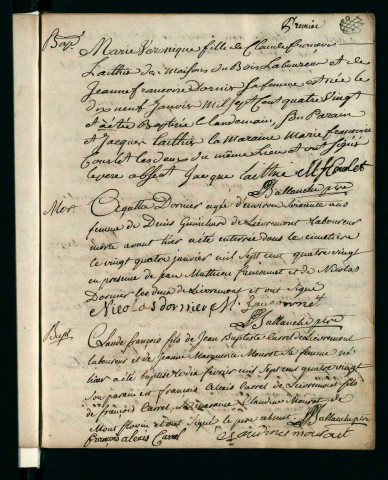 premier
Bap. Marie Veronique fille de Claude François
Laithier des Maisons du Bois Laboureur et de
Jeanne françoise Dornier sa femme est née le
dix neuf janvier mil sept cent quatre vingt
et a été Baptisée le landemain, son Parain
est Jacques Laithier la Maraine Marie françoise
Coulet les deux du même Lieu et ont signés
le pere absent Jacque Laithier M f Coulet
Ballanche ptre
Mor. Agathe Dornier agée d'environ soixante ans
femme de Denis Guinchard de Lievremont laboureur
morte avant hier a été enterrée dans le cimetiere
le vingt quatre janvier mil sept cent quatre vingt
en presence de Jean Mathieu et de Nicolas
Dornier les deux de Lievremont et ont signé
Nicolas dornier
Ballanche ptre
Bapt. Claude françois fils de Jean Baptiste Carrel de Lievremont
laboureur et de Jeanne Marguerite Mourot sa femme né
hier a été baptisé le dix fevrier mil sept cent quatre vingt
son parain est françois Alexis Carrel de Lievremont fils
de françois Carrel, la maraine Claudine Mourot de
Mont flovin et ont signé le pere absent. Ballanche ptre
françois alexis Carrel